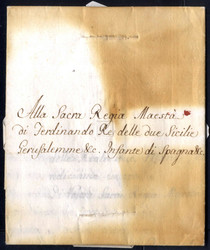 Alla Sacra Regia Maestà
di Ferdinando Re delle due Sicilie
Gerusalemme &c. Infante di Spagna &c